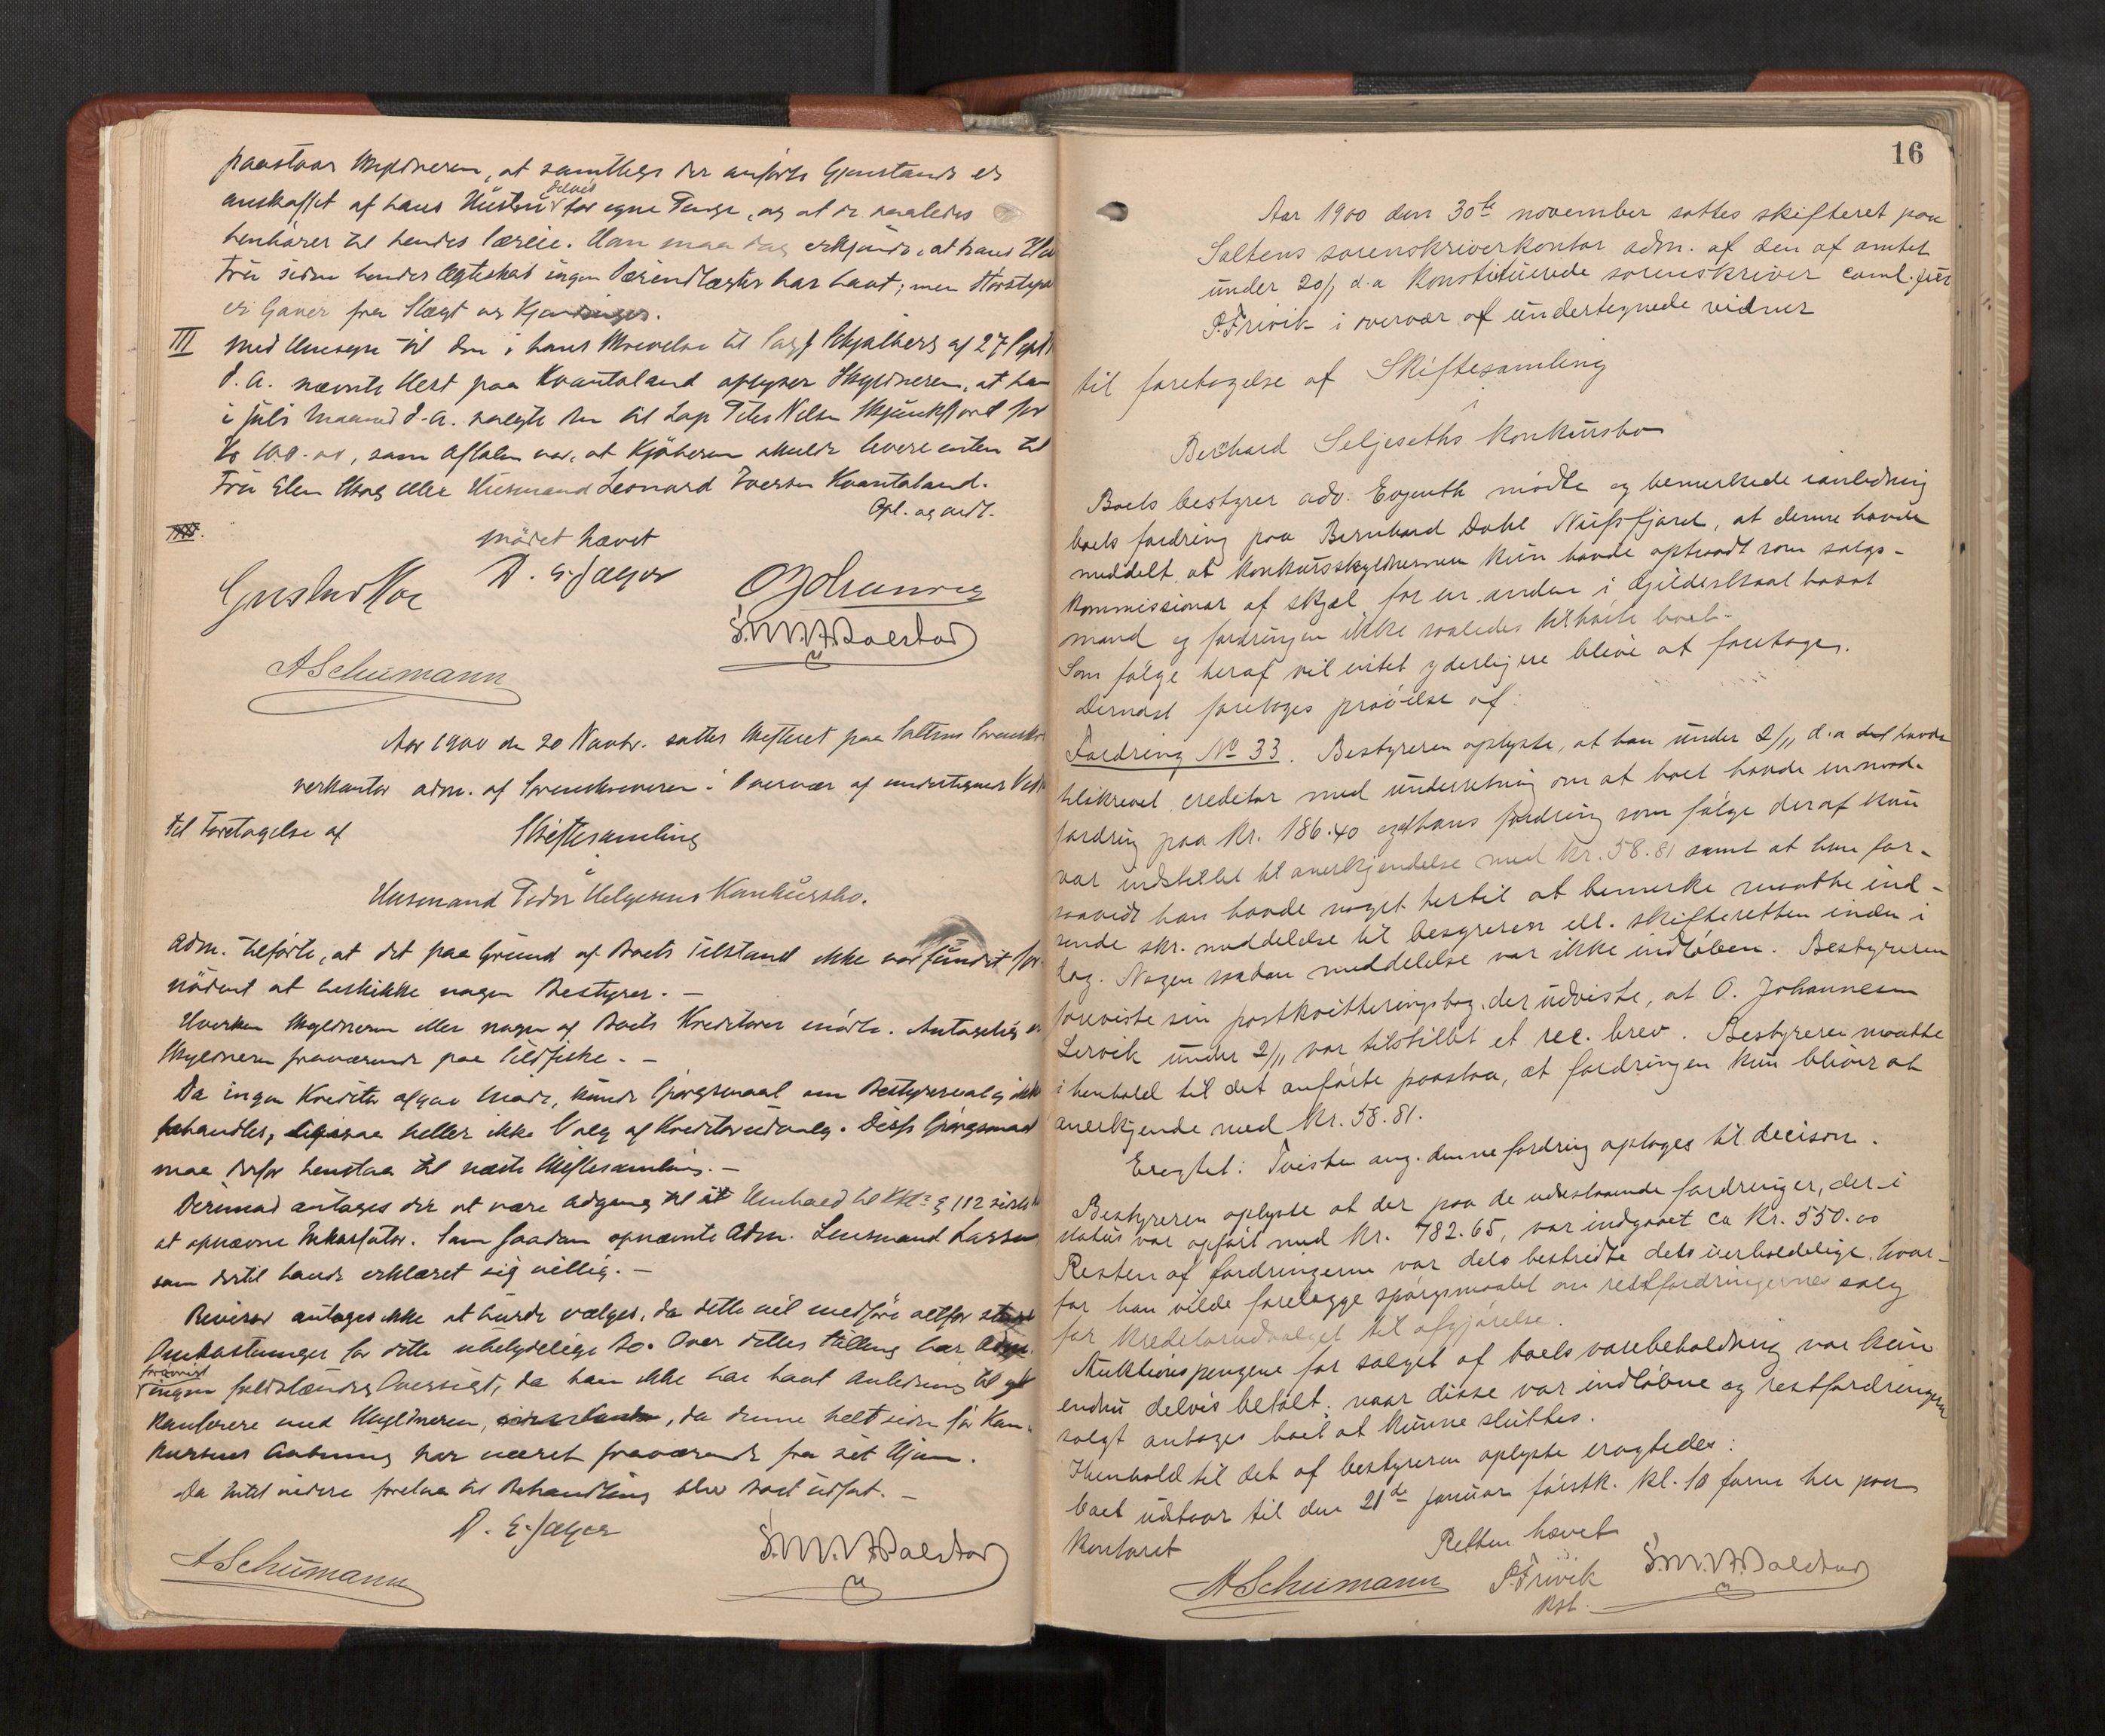 paastaar Skyldneren, at samtlige der anførte Gjenstande er
anskaffet af hans Hustru delvis for egne Penge, og at de saaledes
henhører til hendes Særeie. Han maa dog erkjende, at hans Hu
tru siden hendes Ægteskab ingen Særindtægter har havt; men størstepa
er Gaver fra Slægt og Kjendinger.
III med Hensyn til den i hans Skrivelse til Sagf. Schjølberg af 27 Septb
d. A. nævnte Hest paa Kvantoland oplyser Skyldneren, at han
i juli Maaned d. A. solgte den til Lap Peter Nilsen Skjunkfjord for
Kr 100.00, som Aftalen var, at Kjøberen skulde levere enten til
Fru Elen Skog eller Husmand Leonard Iversen Kvantoland.
Opl. og vedt.
mødet hævet
D. E. Jæger
Gustav Moe
S. M. N. A. Dalstad
A Schumann
Aar 1900 den 20 Novbr. sattes Skifteret paa Saltens Sorenskri
verkontor adm. af Sorenskriveren i Overvær af undertegnede Vid
til Foretagelse af Skiftesamling
i
Husmand Peder Helgesens Konkursbo.
Adm. tilførte, at det paa Grund af Boets Tilstand ikke var fundet for
nødent at beskikke nogen Bestyrer. –
Hverken Skyldneren eller nogen af Boets Kreditorer mødte. Antagelig er
Skyldneren fraværende paa Sildfiske. –
Da ingen Kreditor afgav Møde, kunde Spørgsmaal om Bestyrervalg ikke
behandles, ligesaa heller ikke Valg af Kreditorudvalg. Disse Spørgsmaal
maa derfor henstaa til næste Skiftesamling. –
Derimod antages der at være Adgang til i Henhold til Kkl. § 112 sidste
at opnævne Inkassator. Som saadan opnævnte Adm. Lensmand Larsen
som dertil havde erklæret sig villig. –
Revisor antages ikke at burde vælges, da dette vil medføre altfor store
Omkostninger for dette ubetydelige Bo. Over dettes Stilling har Adm.
forøvrigt
ingen fuldstændig Oversigt, da han ikke har havt Anledning til at
konferere med Skyldneren, da denne helt siden før Kon-
kursens Aabning har været fraværende fra sit Hjem.
Da Intet videre forelaa til Behandling blev Boet udsat. –
D. E. Jæger
A Schumann
S. M. N. A. Dalstad
16
Aar 1900 den 30te november sattes skifteret paa
Saltens sorenskriverkontor adm. af den af amtet
under 20/11 d.a konstituerede sorenskriver cand. jur
P. Trivik i overvær af undertegnede vidner
til foretagelse af Skiftesamling
i
Berhard Seljeseths konkursbo
Boets bestyrer adv. Evjenth mødte og bemerkede i anledning
boets fordring paa Bernhard Dahl Nufsfjord, at denne havde
meddelt, at konkursskyldneren kun havde optraadt som salgs-
kommissionær af skjæl for en anden i Gildeskaal bosat
mand og fordringen ikke saaledes tilhørte boet.
Som følge heraf vil intet yderligere blive at foretage.
Dernæst foretoges prøvelse af:
Fordring No 33. Bestyreren oplyste, at han under 2/11 d.a havde
tilskrevet creditor med underretning om at boet havde en mod-
fordring paa Kr. 186.40 og at hans fordring som følge deraf kun
var indstillet til anerkjendelse med Kr. 58.81 samt at han for-
saavidt han havde noget hertil at bemerke maatte ind-
sende skr. meddelelse til besyreren ell. skifteretten inden i
dag. Nogen saadan meddelelse var ikke indløben. Bestyreren
foreviste sin postkvitteringsbog, der udviste, at O. Johannesen
Lervik under 2/11 var tilstillet et rec. brev. Bestyreren maatte
i henhold til det anførte paastaa, at fordringen kun bliver at
anerkjende med Kr. 58.81.
Eragtet: Tvisten ang. denne fordring optages til decision.
Bestyreren oplyste at der paa de udestaaende fordringer, der i
status var opført med Kr. 782.65, var indgaaet ca Kr. 550.00
Resten af fordringerne var dels bestridte dels uerholdelige, hvor-
for han vilde forelægge spørgsmaalet om restfordringernes salg
for kreditorudvalget til afgjørelse.
Auktionspengene for salget af boets varebeholdning var kun
endnu delvis betalt, naar disse var indløbne og restfordringerne
solgt antoges boet at kunne sluttes.
I henhold til det af bestyreren oplyste eragtedes:
boet udstaar til den 21de januar førstk. kl. 10 form her paa
kontoret
Retten hævet
A Schumann P. Trivik S. M. N. A. Dalstad
kst.